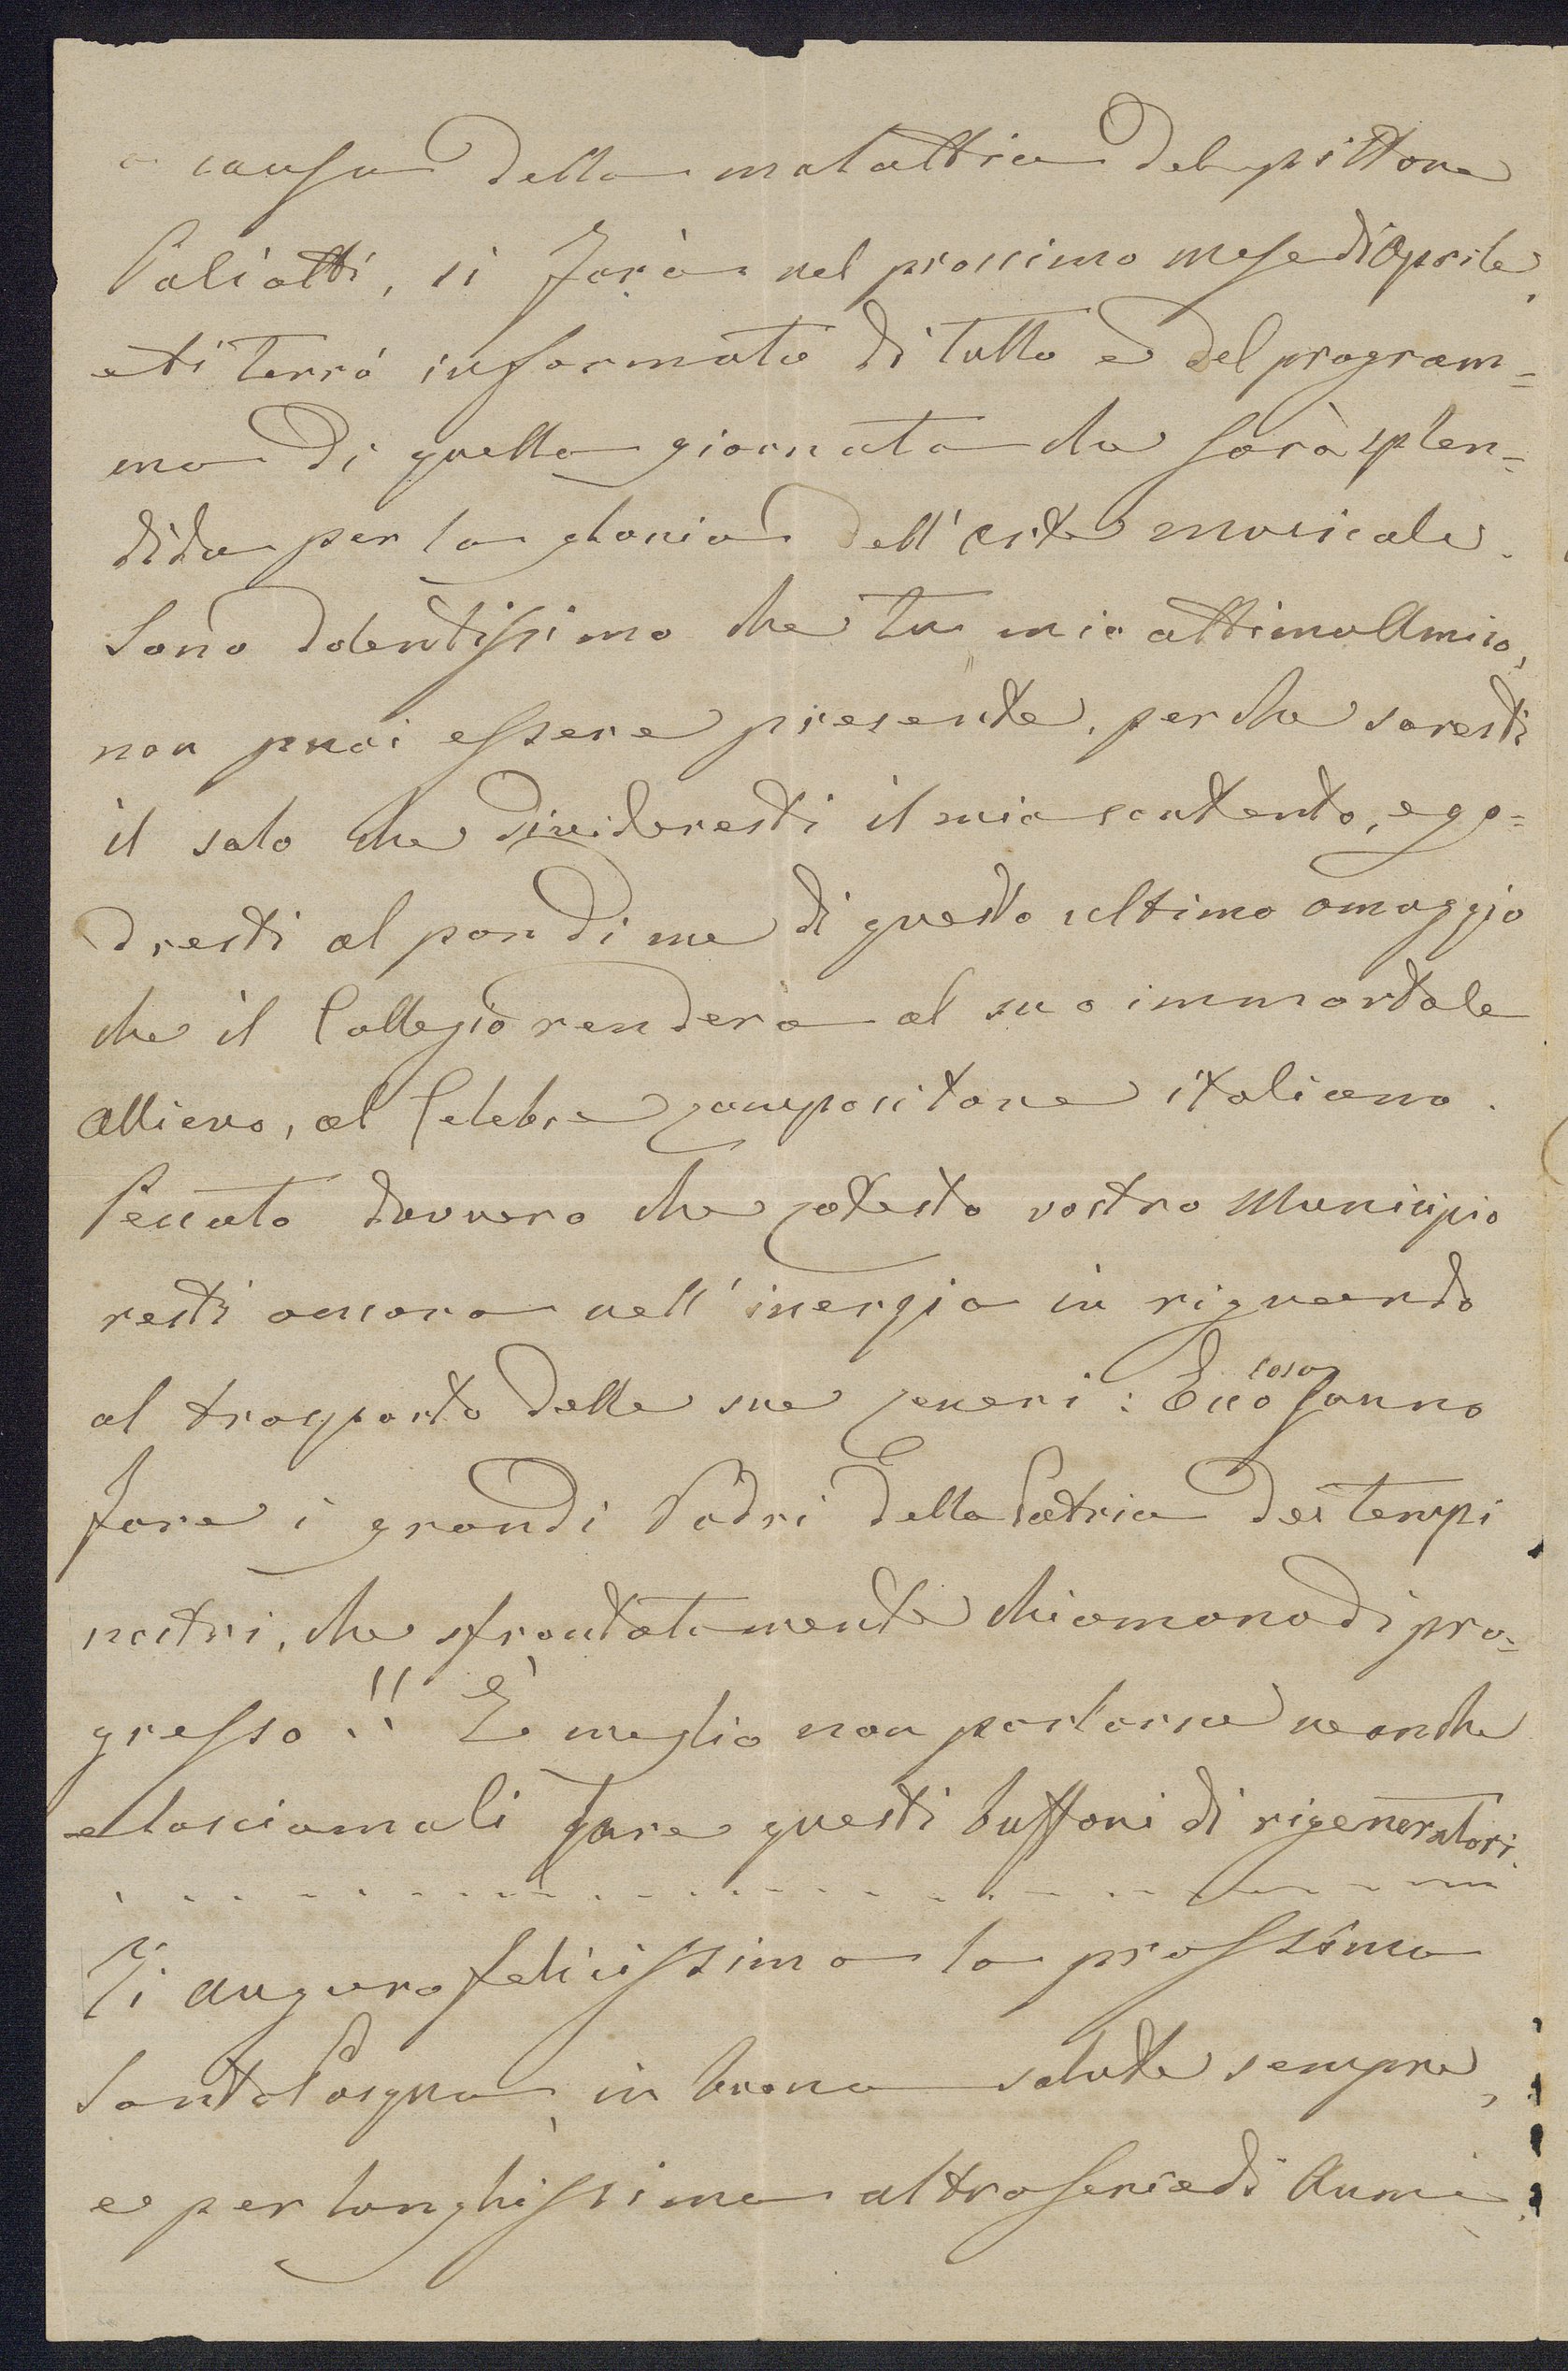 a causa della malattia del pittore
Paliotti, si farà nel prossimo mese di Aprile,
e ti terrò informato di tutto e del program=
ma di quella giornata che sarà splen=
dida per la gloria dell'arte musicale.
Sono dolentissimo che tu mio ottimo Amico,
non puoi essere presente, perche saresti
il solo che divideresti il mio contento, e go=
dresti al pari di me di questo ultimo omaggio
che il Collegio renderà al suo immortale
allievo, al celebre compositore italiano.
Peccato davvero che cotesto vostro Municipio
resti ancora nell'inergia in riguardo
al trasporto delle sue ceneri: Ecco cosa sanno
fare i grandi Padri della Patria dei tempi
nostri, che sfrontatamente chiamano di pro=
gresso!! È meglio non parlarne neanche
e lasciamoli fare questi buffoni di rigeneratori.
Ti auguro felicissima la prossima
Santa Pasqua, in buona salute sempre,
e per lunghissima altra serie di Anni.